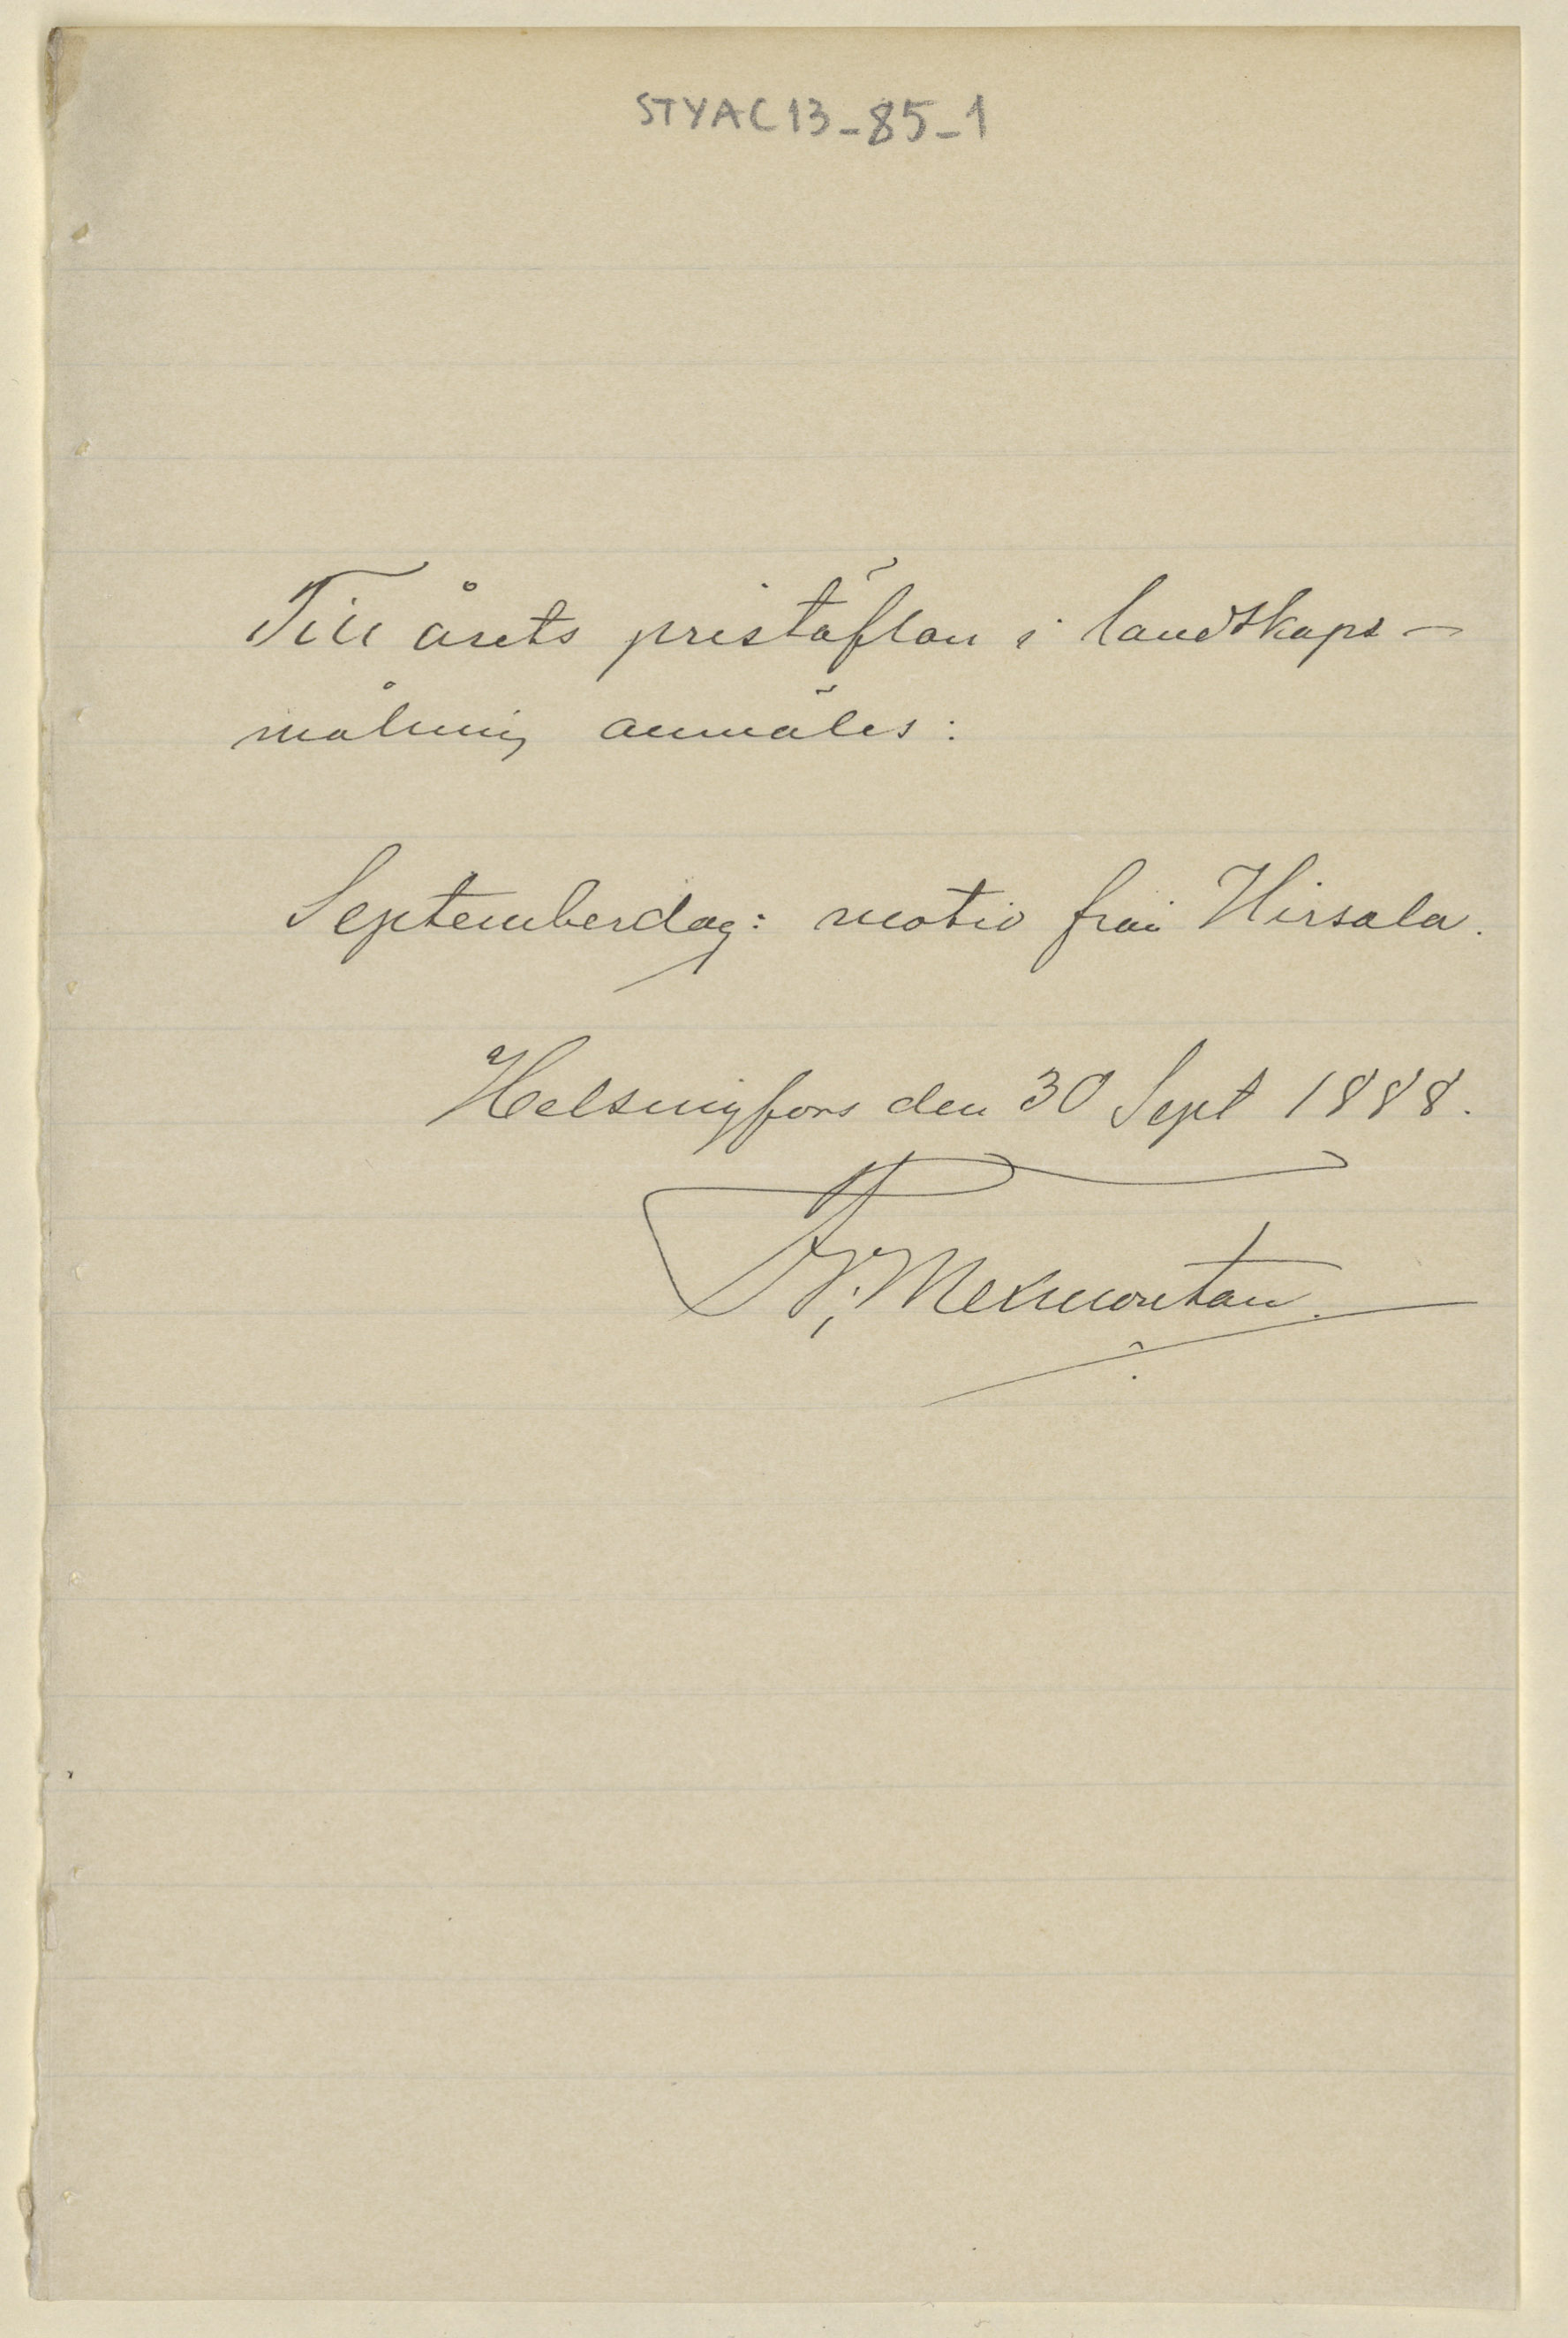 STYAC13-85-1
Till årets pristäflan i landskaps-
målning anmäles:
Septemberdag: motiv från Hirsala.
Helsingfors den 30 Sept 1888.
Mexmontan.